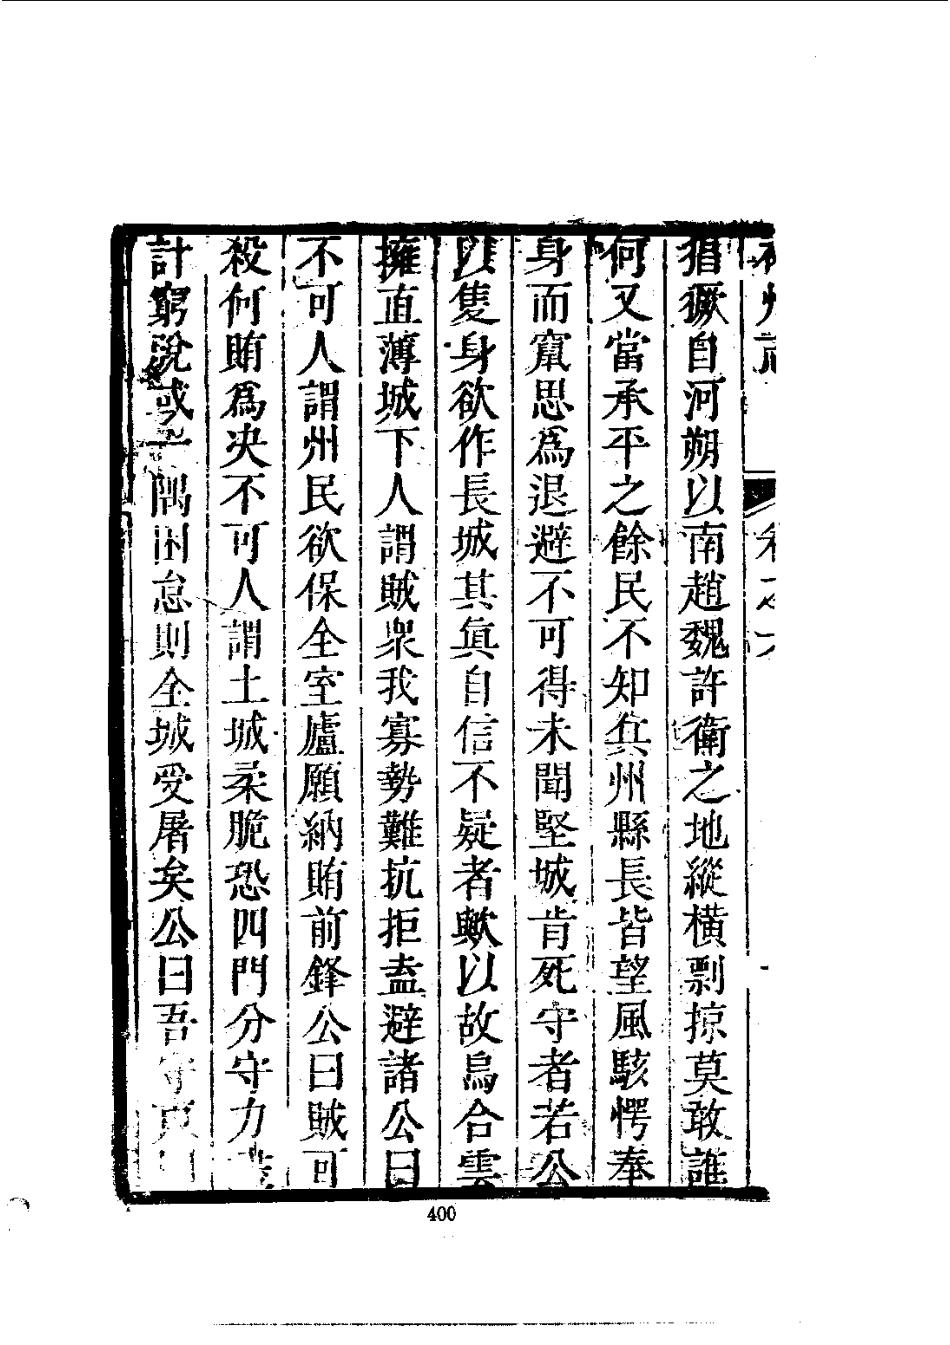 州志 卷之六
猖獗自河朔以南趙魏許衛之地縱橫剽掠莫敢誰
何又當承平之餘民不知兵州縣長皆望風駭愕奉
身而竄思爲退避不可得未聞堅城肯死守者若公
以隻身欲作長城其眞自信不疑者歟以故烏合雲
擁直薄城下人謂賊衆我寡勢難抗拒盍避諸公曰
不可人謂州民欲保全室廬願納賄前鋒公曰賊可
殺何賄爲决不可人謂土城柔脆恐四門分守力
計窮說或一隅困怠則全城受屠矣公曰吾守
400